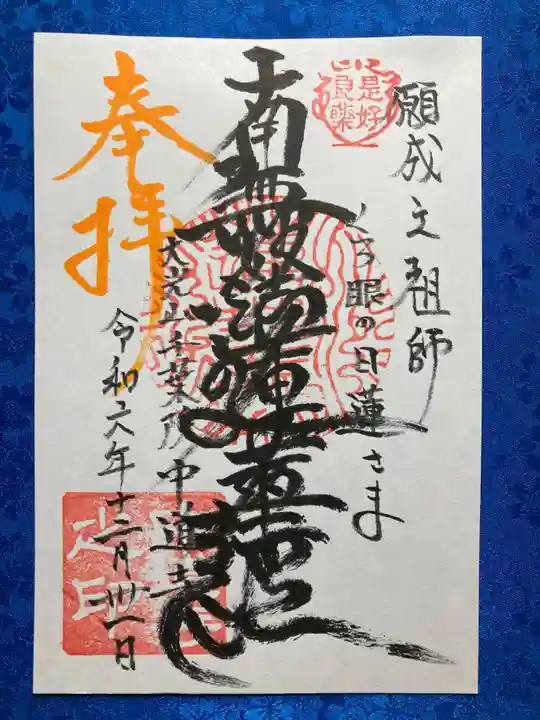 願成立祖師
くろ眼の日蓮さま
是好
良藥
南無妙法蓮華経
奉拝
大光山千葉院中道寺
令和六年十二月卅一日